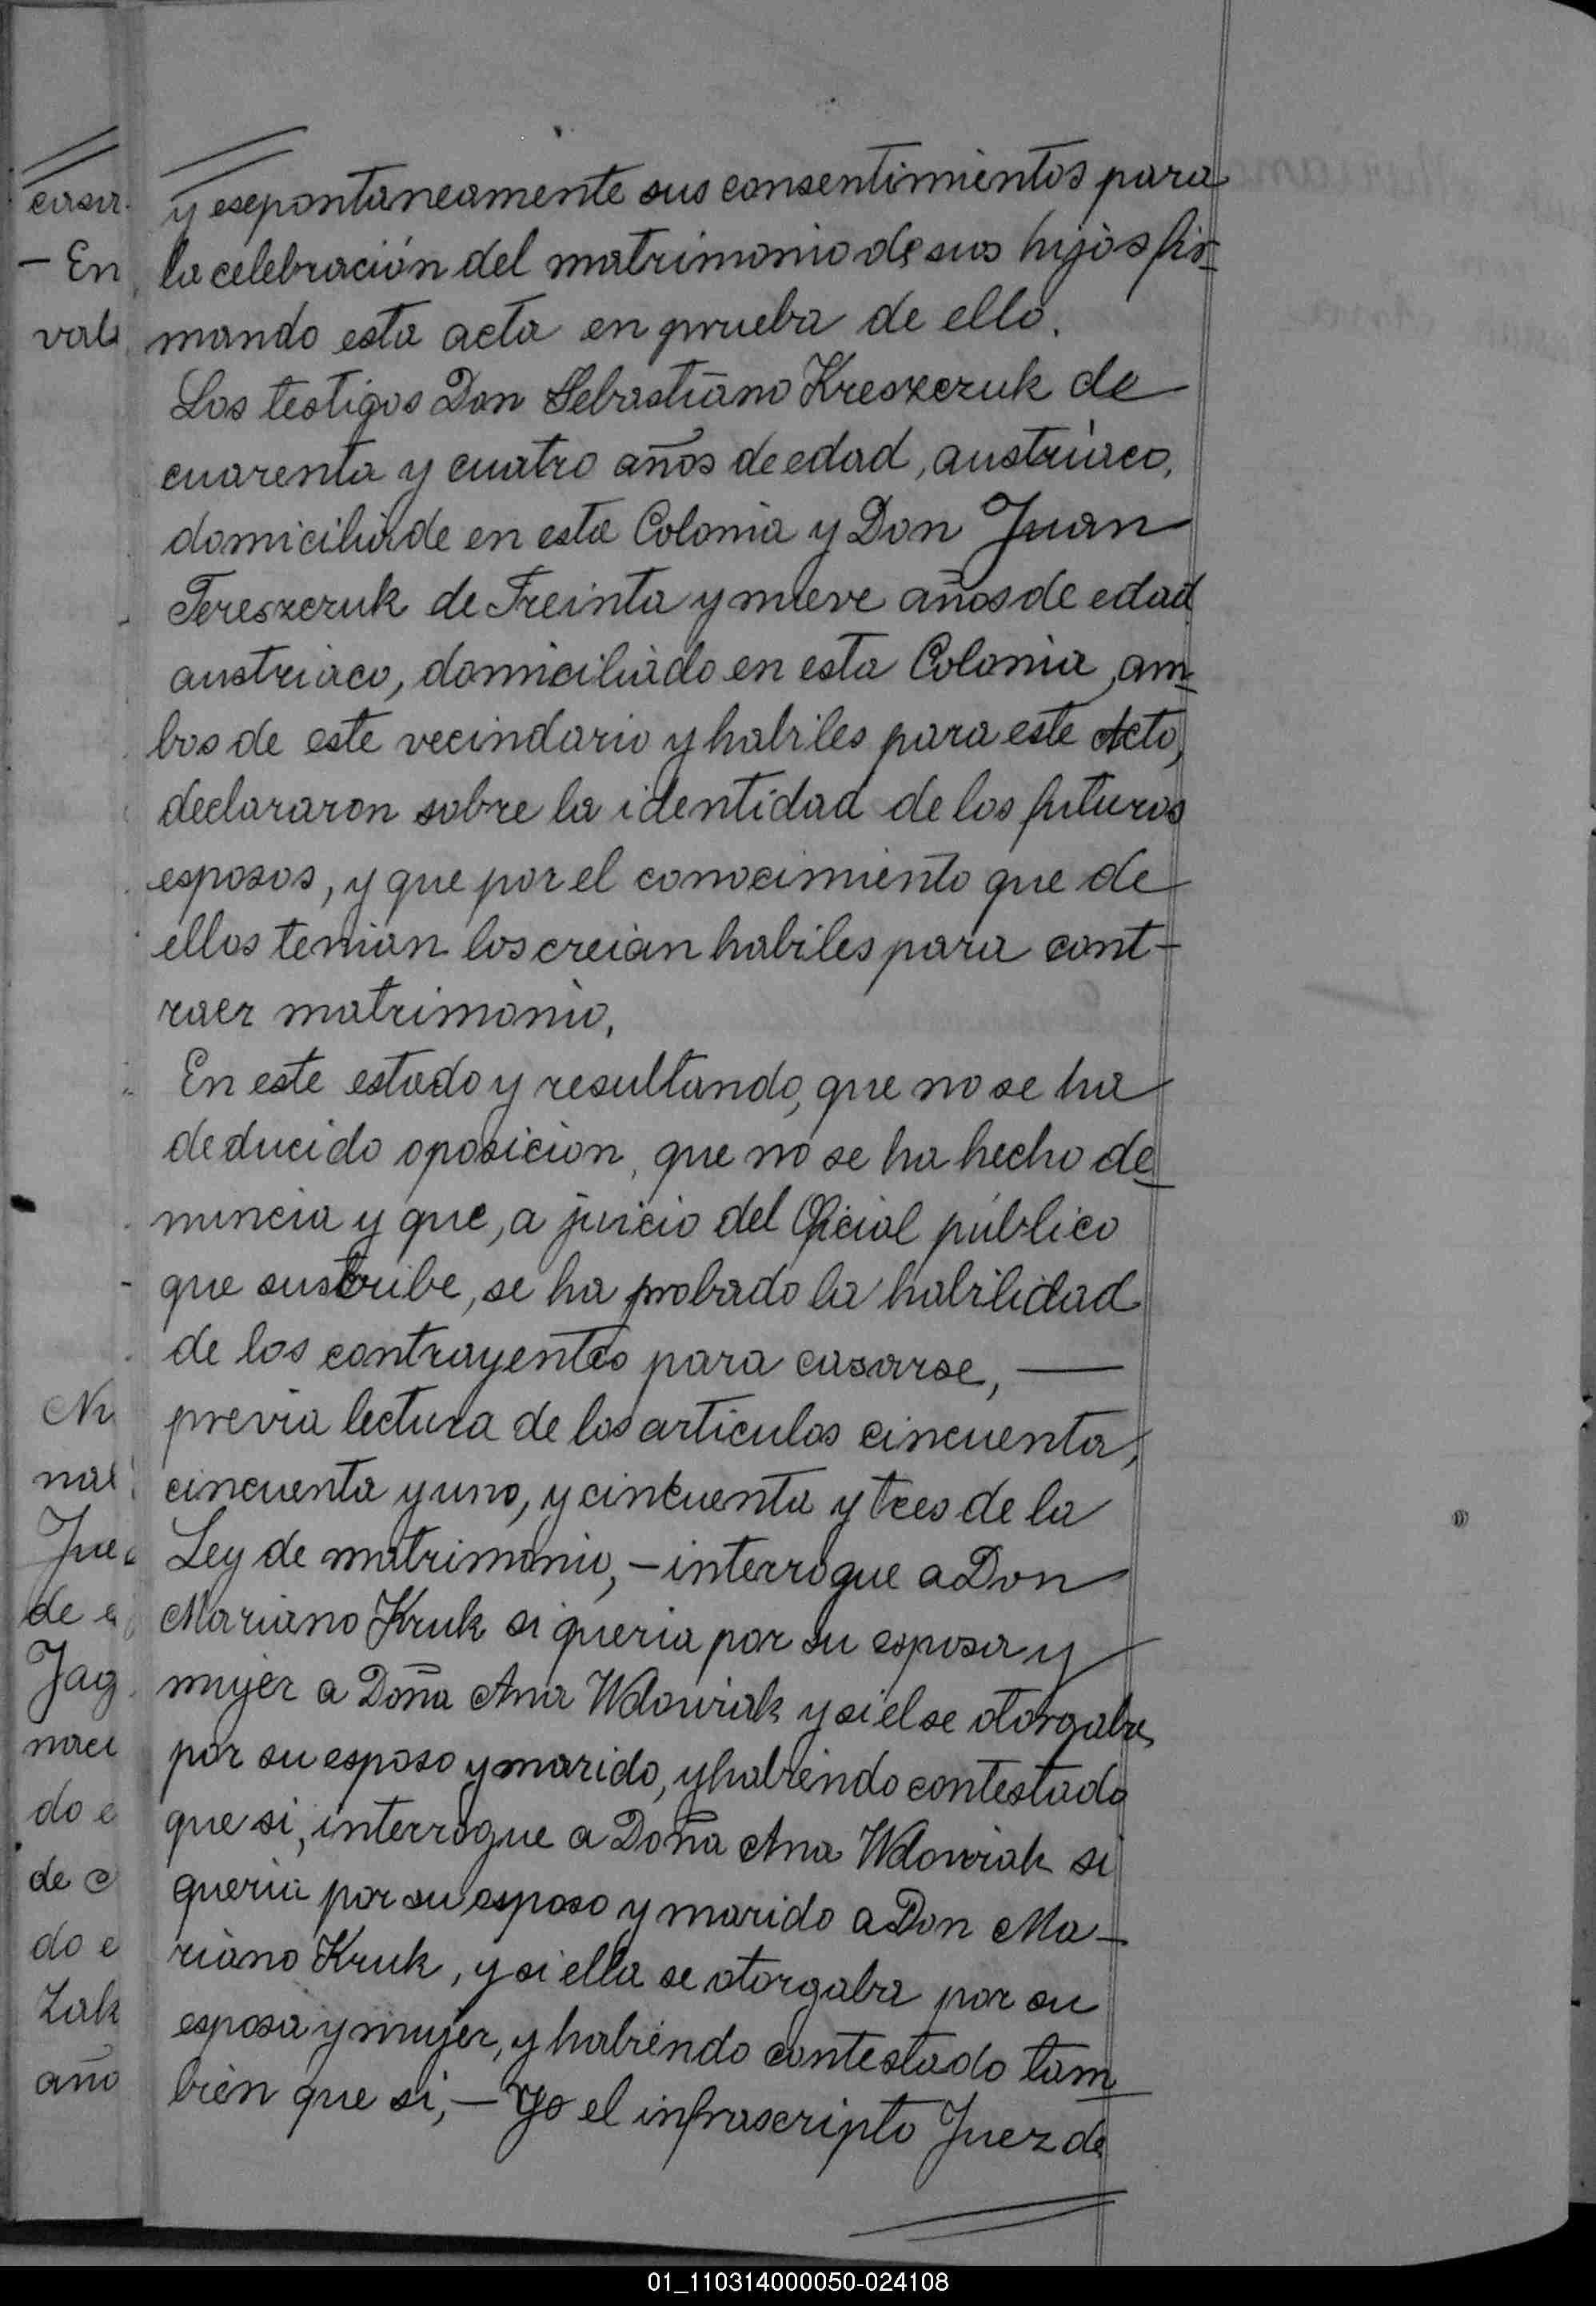 casar.
- En
vals
y esepontaneamente sus consentimientos para
la celebración del matrimonio de sus hijos fir-
mando esta acta en prueba de ello.
Los testigos Don Sebastiano Kreszczuk de
cuarenta y cuatro años de edad, austriaco,
domiciliade en esta Colonia y Don Juan
Tereszczuk de Treinta y nueve años de edad
austriaco, domiciliado en esta Colonia, am-
bos de este vecindario y habiles para este Acto,
declararon sobre la identidad de los futuros
esposos, y que por el conocimiento que de
ellos tenian los creian habiles para cont-
raer matrimonio.
En este estado y resultando, que no se ha
deducido oposicion, que no se ha hecho de-
nuncia y que, a juicio del Oficial público
que suscribe, se ha probado la habilidad
de los contrayentes para casarse, —
previa lectura de los articulos cincuenta,
cincuenta y uno, y cincuenta y tres de la
Ley de matrimonio, - interrogue a Don
Mariano Kruk si queria por su esposa y
mujer a Doña Ana Wdowiak y si el se otorgaba
por su esposo y marido, y habiendo contestado
que si, interrogue a Doña Ana Wdowiak si
queria por su esposo y marido a Don Ma-
riano Kruk, y si ella se otorgaba por su
esposa y mujer, y habiendo contestado tam-
bien que si, - Yo el infrascripto Juez de
nal
Jue
de
Jag
naci
do e
de
do e
Zak
año
01_110314000050-024108